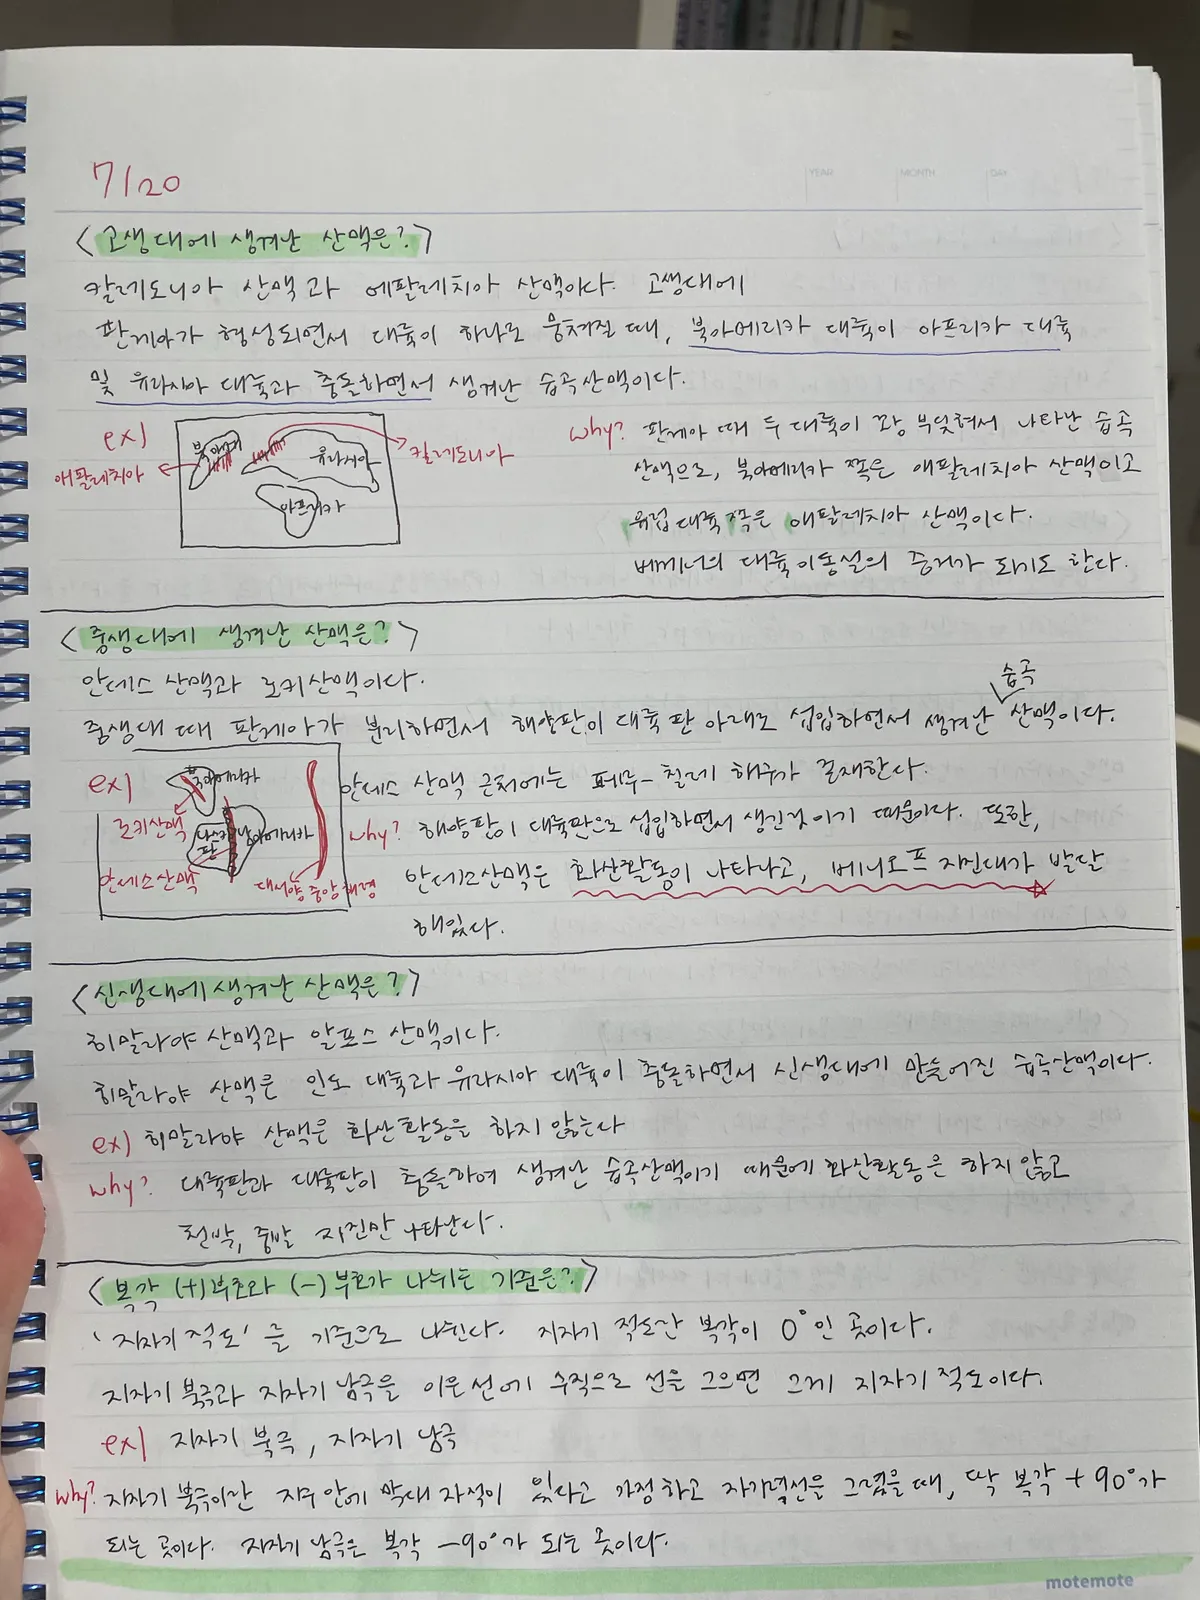 YEAR MONTH DAY
7/20
<고생대에 생겨난 산맥은?>
칼레도니아 산맥과 애팔레치아 산맥이다. 고생대에
판게아가 형성되면서 대륙이 하나로 뭉쳐질 때, 북아메리카 대륙이 아프리카 대륙
및 유라시아 대륙과 충돌하면서 생겨난 습곡산맥이다.
ex)
북아메리
유라시아
아프리카
애팔레치아
칼레도니아
why? 판게아 때 두 대륙이 꽝 부딪혀서 나타난 습곡
산맥으로, 북아메리카 쪽은 애팔레치아 산맥이고
유럽 대륙 쪽은 애팔레치아 산맥이다.
베게너의 대륙이동설의 증거가 되기도 한다.
<중생대에 생겨난 산맥은?>
안데스 산맥과 로키산맥이다.
습곡
중생대 때 판게아가 분리하면서 해양판이 대륙판 아래로 섭입하면서 생겨난 산맥이다.
ex)
북아메리카
로키산맥
나즈카판
남아메리카
안데스산맥
대서양 중앙해령
안데스 산맥 근처에는 페루-칠레 해구가 존재한다.
why? 해양판이 대륙판으로 섭입하면서 생긴것이기 때문이다. 또한,
안데스산맥은 화산활동이 나타나고, 베니오프 지진대가 발달
해있다.
<신생대에 생겨난 산맥은?>
히말라야 산맥과 알프스 산맥이다.
히말라야 산맥은 인도 대륙과 유라시아 대륙이 충돌하면서 신생대에 만들어진 습곡산맥이다.
ex) 히말라야 산맥은 화산활동을 하지 않는다
why? 대륙판과 대륙판이 충돌하여 생겨난 습곡산맥이기 때문에 화산활동은 하지 않고
천발, 중발 지진만 나타난다.
<복각 (+)부호와 (-)부호가 나뉘는 기준은?>
'지자기 적도'를 기준으로 나뉜다. 지자기 적도란 복각이 0°인 곳이다.
지자기 북극과 지자기 남극을 이은 선에 수직으로 선을 그으면 그게 지자기 적도이다.
ex) 지자기 북극, 지자기 남극
why? 지자기 북극이란 지구 안에 막대 자석이 있다고 가정하고 자기력선을 그렸을 때, 딱 복각 +90°가
되는 곳이다. 지자기 남극은 복각 -90°가 되는 곳이다.
motemote